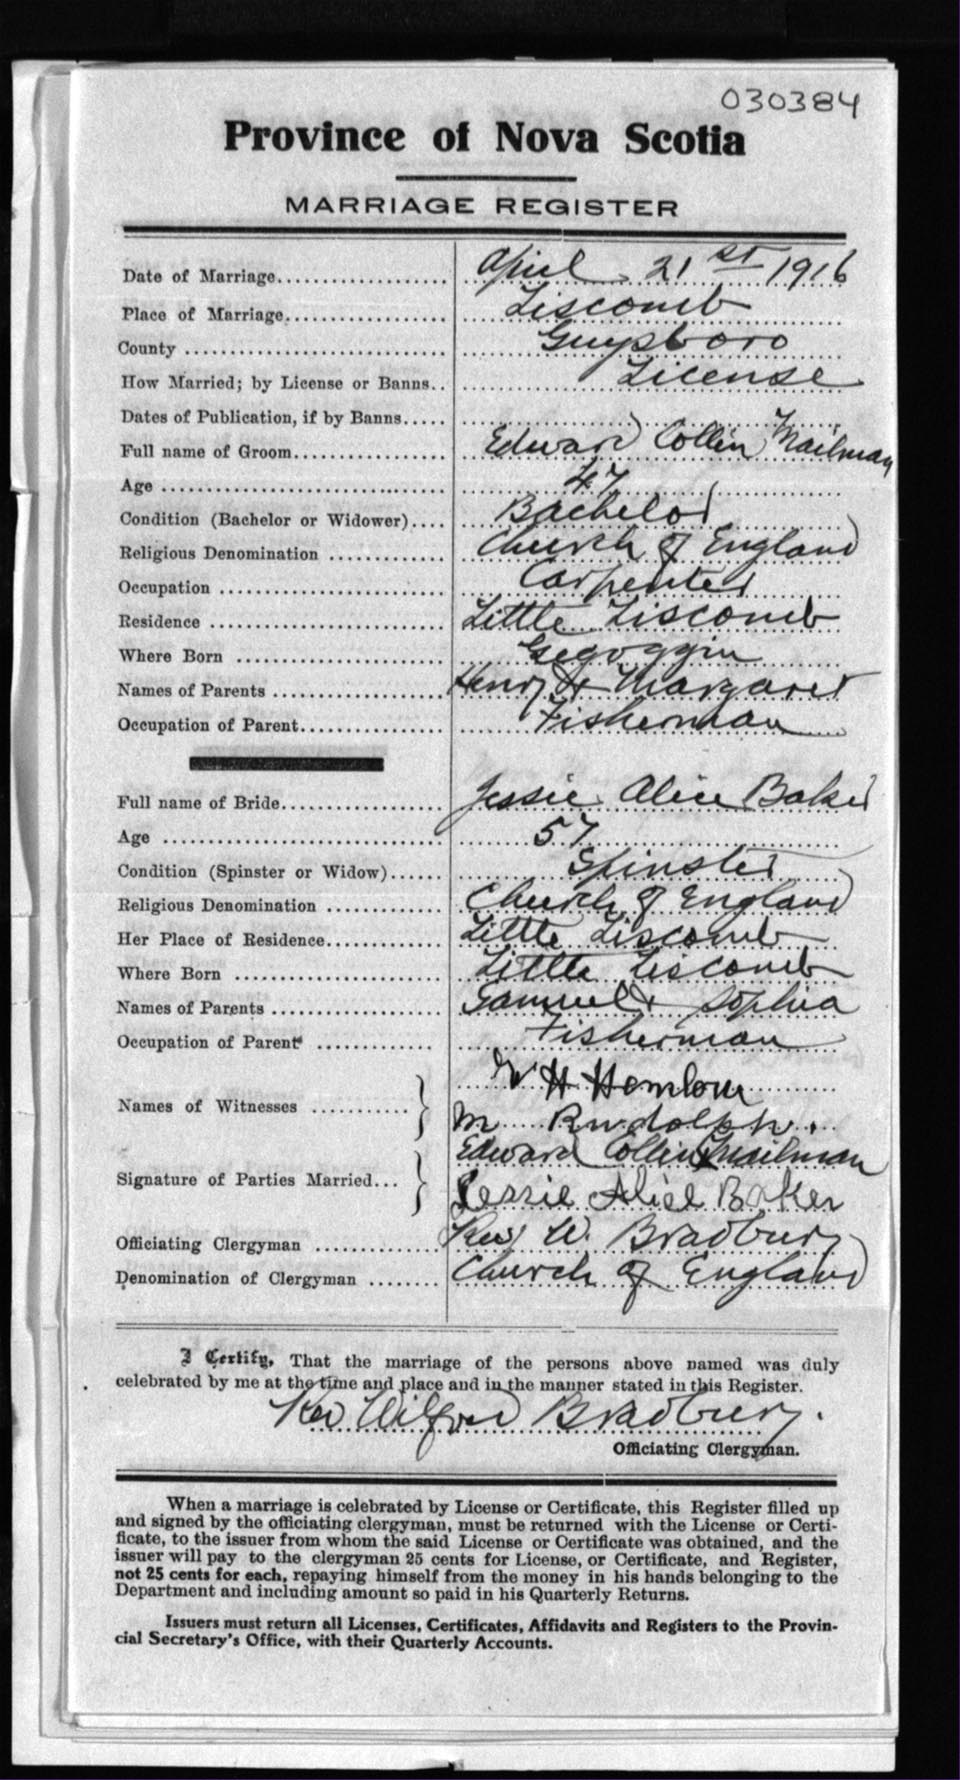 030384
Province of Nova Scotia
MARRIAGE REGISTER
Date of Marriage.................... April 21st 1916
Place of Marriage.................... Liscomb
County .................... Guysboro
How Married; by License or Banns.. License
Dates of Publication, if by Banns.....
Full name of Groom.................... Edward Collin Mailman
Age .................... 47
Condition (Bachelor or Widower).... Bachelor
Religious Denomination .............. Church of England
Occupation .................... Carpenter
Residence .................... Little Liscomb
Where Born .................... Gegoggin
Names of Parents .................... Henry & Margaret
Occupation of Parent.................. Fisherman
Full name of Bride.................... Jessie Alice Baker
Age .................... 57
Condition (Spinster or Widow)...... Spinster
Religious Denomination .............. Church of England
Her Place of Residence.............. Little Liscomb
Where Born .................... Little Liscomb
Names of Parents .................... Samuel & Sophia
Occupation of Parent .............. Fisherman
Names of Witnesses ........... } H Hemlow
M Rudolph.
Signature of Parties Married... } Edward Collin Mailman
Jessie Alice Baker
Officiating Clergyman .............. Rev W. Bradbury
Denomination of Clergyman ........ Church of England
I Certify, That the marriage of the persons above named was duly
celebrated by me at the time and place and in the manner stated in this Register.
Rev Wilfred Bradbury.
Officiating Clergyman.
When a marriage is celebrated by License or Certificate, this Register filled up
and signed by the officiating clergyman, must be returned with the License or Certi-
ficate, to the issuer from whom the said License or Certificate was obtained, and the
issuer will pay to the clergyman 25 cents for License, or Certificate, and Register,
not 25 cents for each, repaying himself from the money in his hands belonging to the
Department and including amount so paid in his Quarterly Returns.
Issuers must return all Licenses, Certificates, Affidavits and Registers to the Provin-
cial Secretary's Office, with their Quarterly Accounts.